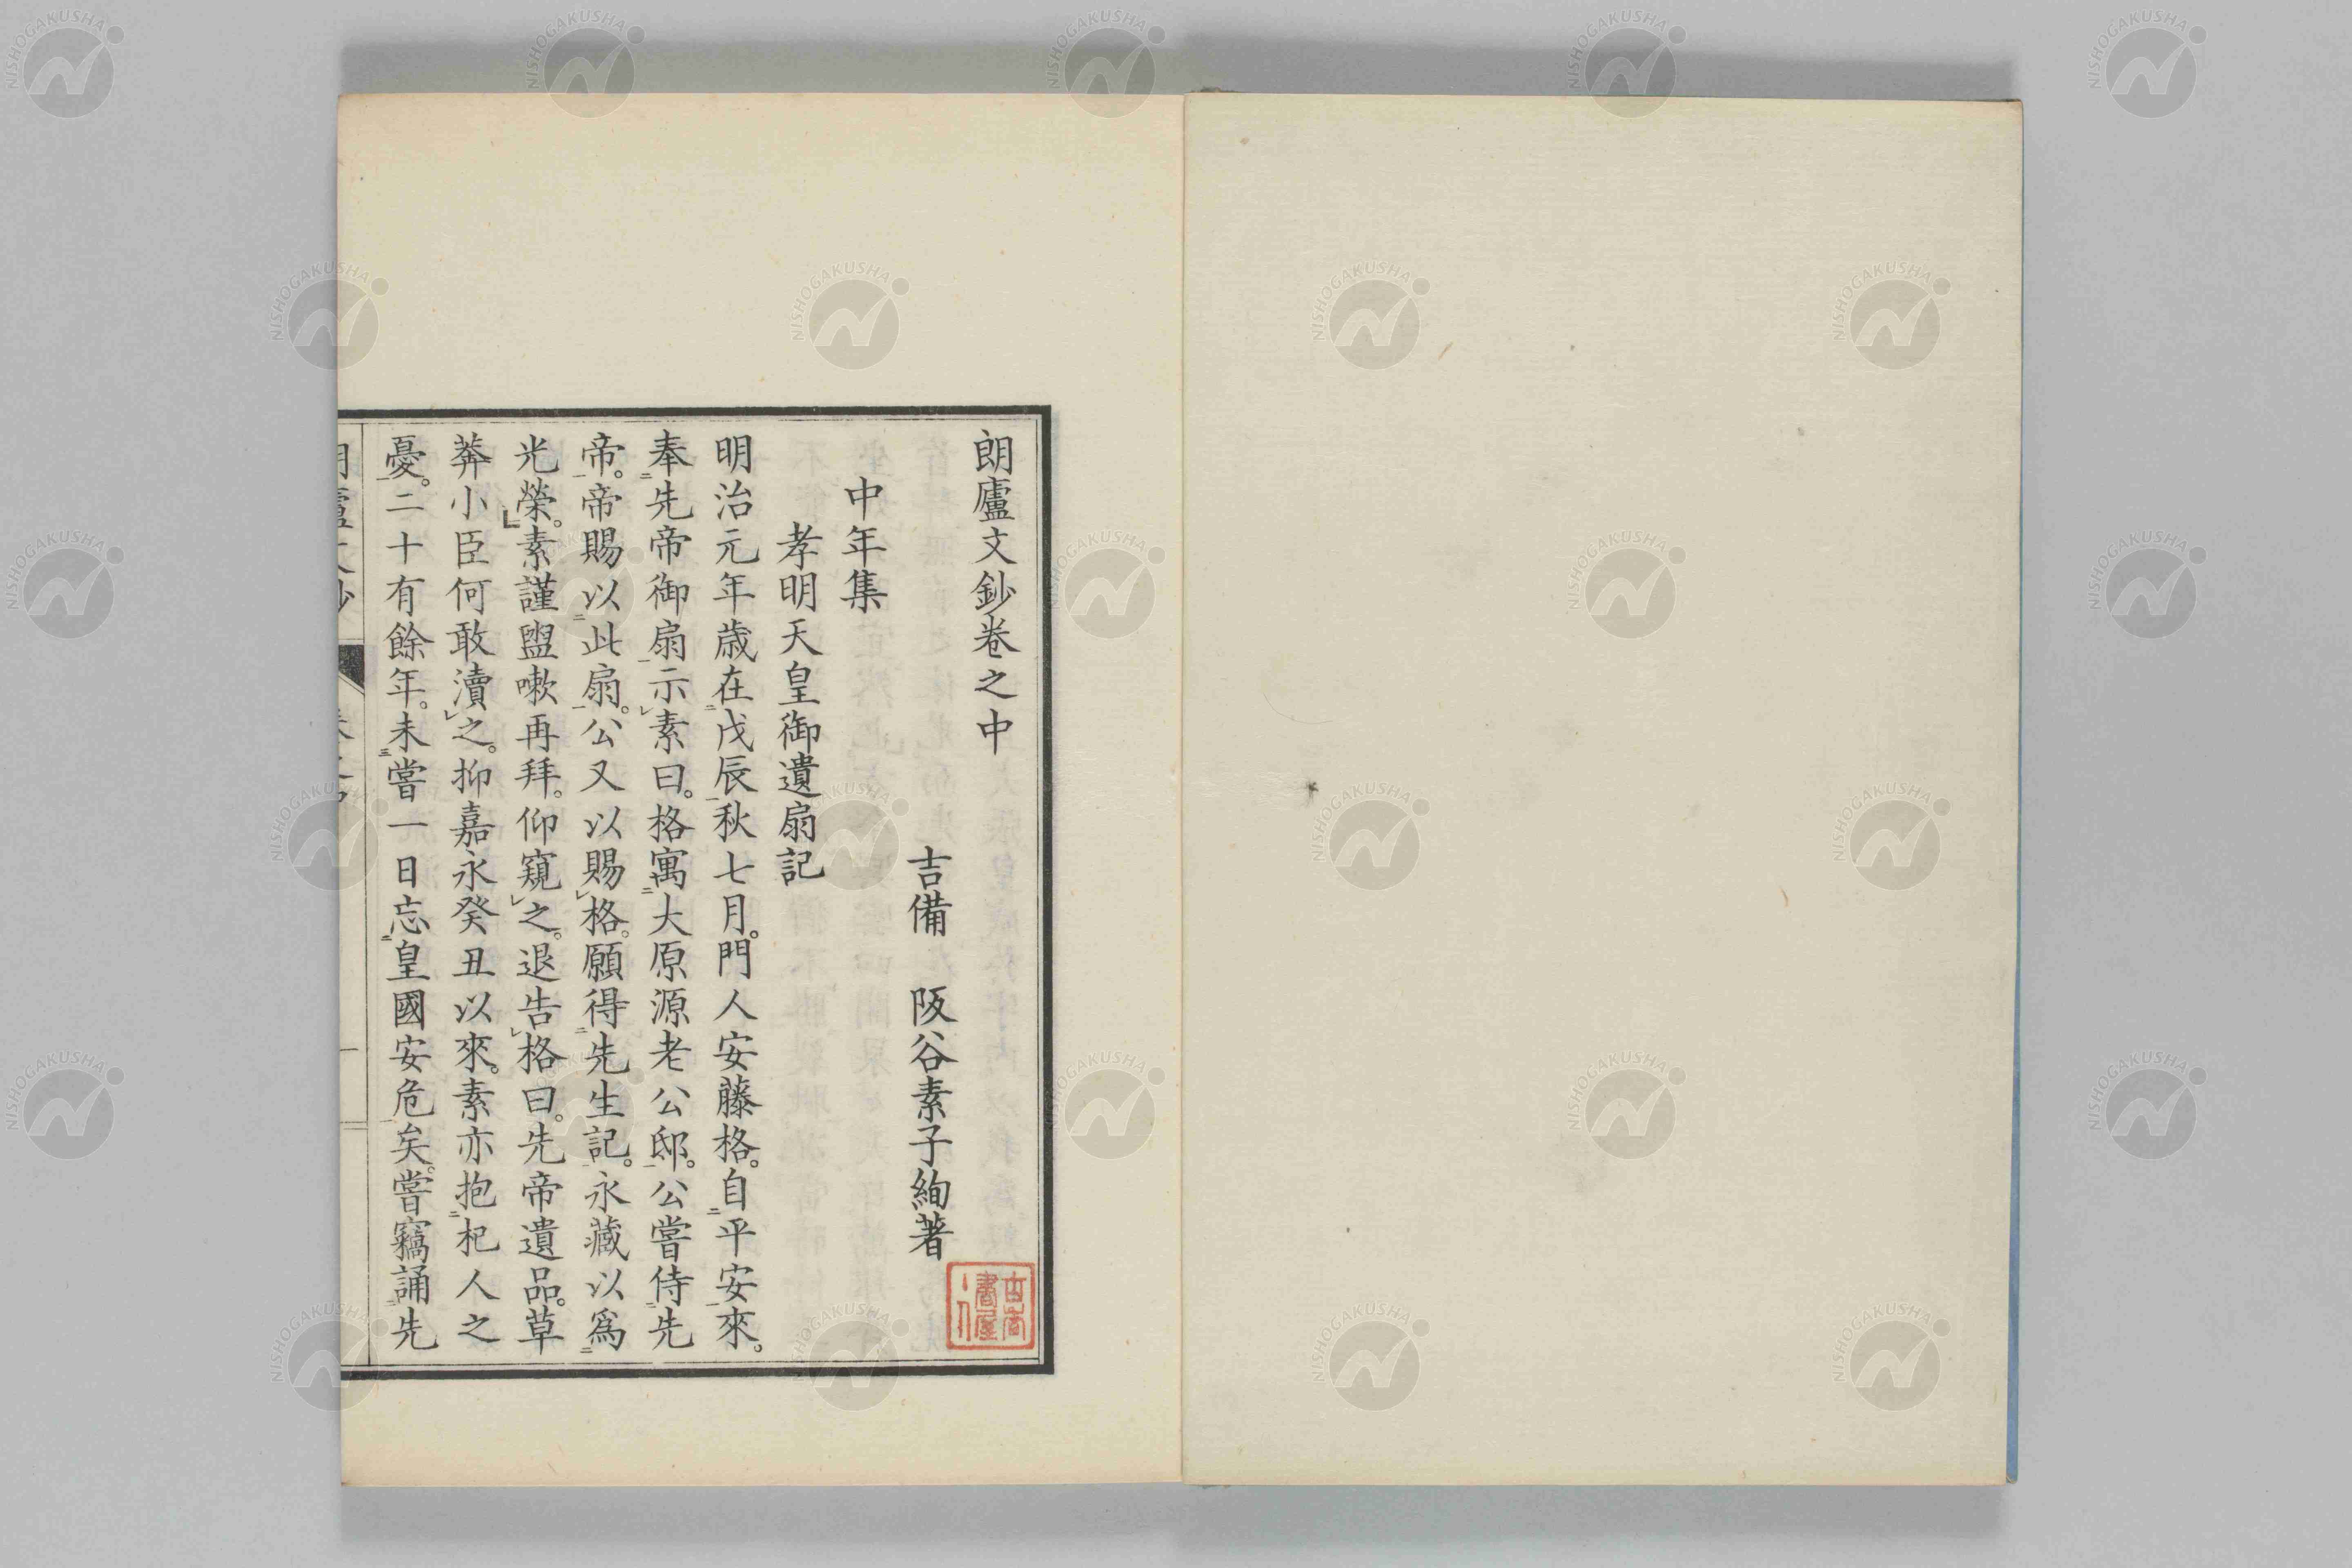 朗廬文鈔卷之中
吉備　阪谷素子絢著
中年集
孝明天皇御遺扇記
明治元年歳在二戊辰一秋七月。門人安藤格。自二平安一來。
奉二先帝御扇一示レ素曰。格寓二大原源老公邸一。公嘗侍二先
帝一。帝賜以二此扇一。公又以賜レ格。願得二先生記一。永藏以爲二
光榮一。」素謹盥嗽再拜。仰窺レ之。退告レ格曰。先帝遺品。草
莽小臣何敢瀆レ之。抑嘉永癸丑以來。素亦抱二杞人之
憂一。二十有餘年。未三嘗一日忘二皇國安危一矣。嘗竊誦二先
書屋
NISHOGAKUSHA